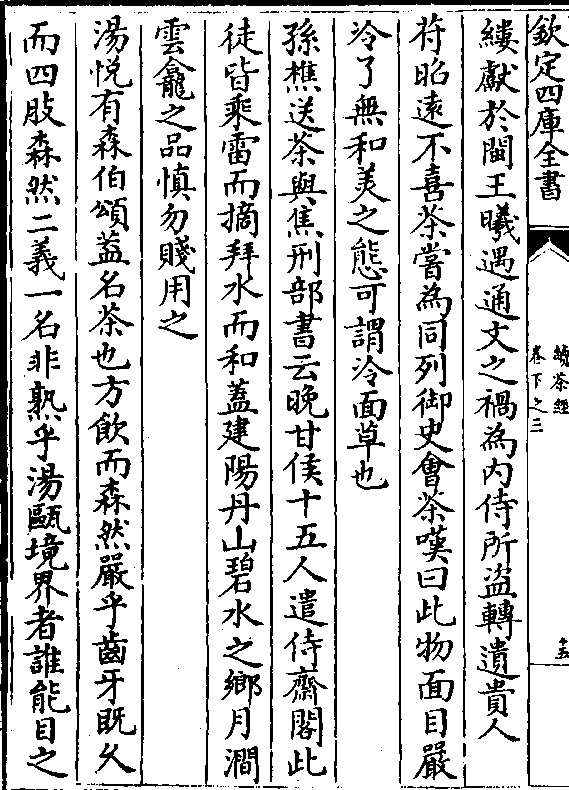 欽定四庫全書
續茶經
卷下之三
十五
縷獻於閩王曦遇通文之禍為内侍所盜轉遺貴人
苻昭遠不喜茶嘗為同列御史會茶嘆曰此物面目嚴
冷了無和美之態可謂冷面草也
孫樵送茶與焦刑部書云晚甘侯十五人遣侍齋閣此
徒皆乘雷而摘拜水而和葢建陽丹山碧水之鄉月澗
雲龕之品慎勿賤用之
湯悅有森伯頌葢名茶也方飲而森然嚴乎齒牙既久
而四肢森然二義一名非熟乎湯甌境界者誰能目之